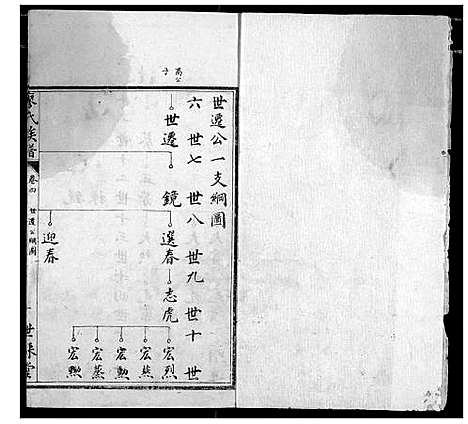 世遷公一支綱圖
六世 七世 八世 九世 十世
萬公子
世遷
鏡
選春 迎春
志虎
宏烈
宏勲
宏蒸
宏
廖氏族譜 卷四 世遷公綱圖 世綵堂